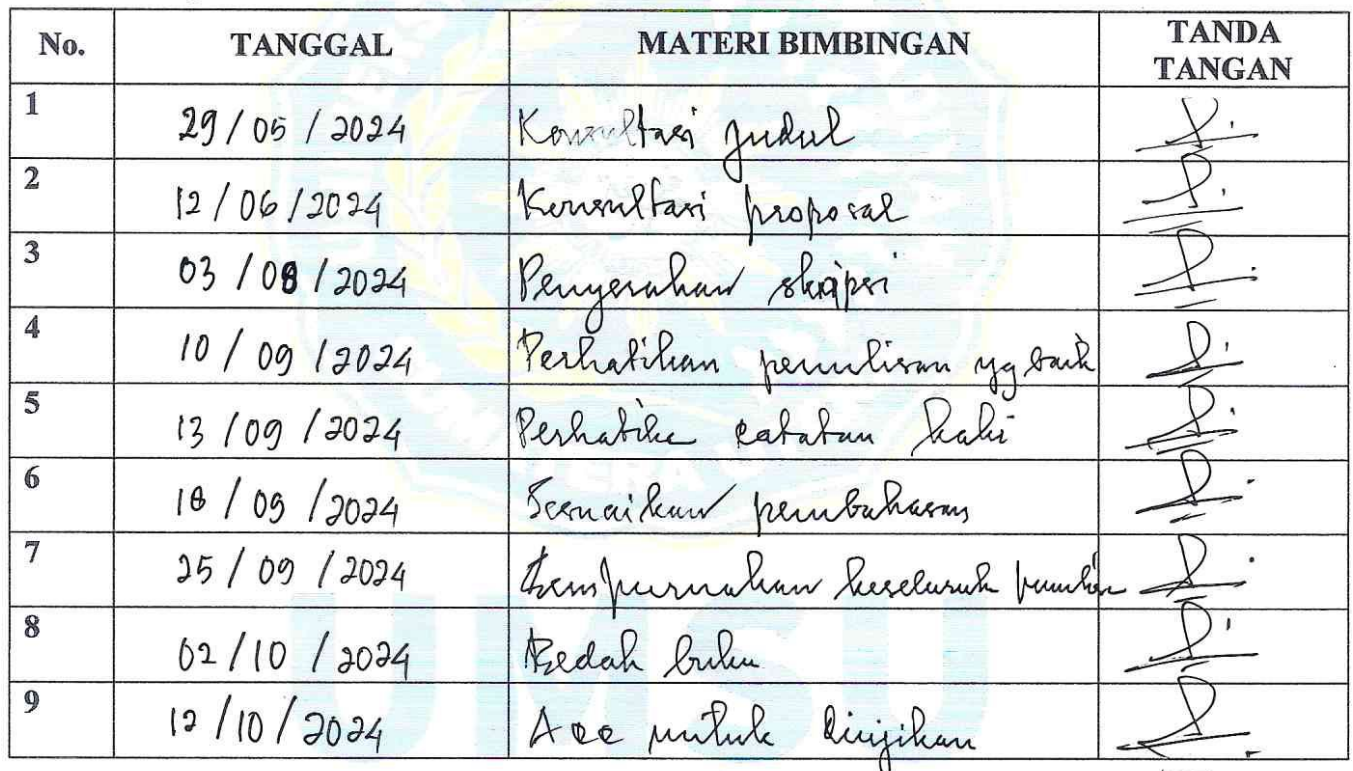 No. TANGGAL MATERI BIMBINGAN TANDA TANGAN
1 29/05/2024 Konsultasi judul
2 12/06/2024 Konsultasi proposal
3 03/08/2024 Penyerahan skripsi
4 10/09/2024 Perhatikan penulisan yg baik
5 13/09/2024 Perhatika catatan kaki
6 18/09/2024 Sesuaikan pembahasan
7 25/09/2024 Sempurnakan keseluruh
8 02/10/2024 Bedah buku
9 12/10/2024 Acc untuk diujikan
UMSU